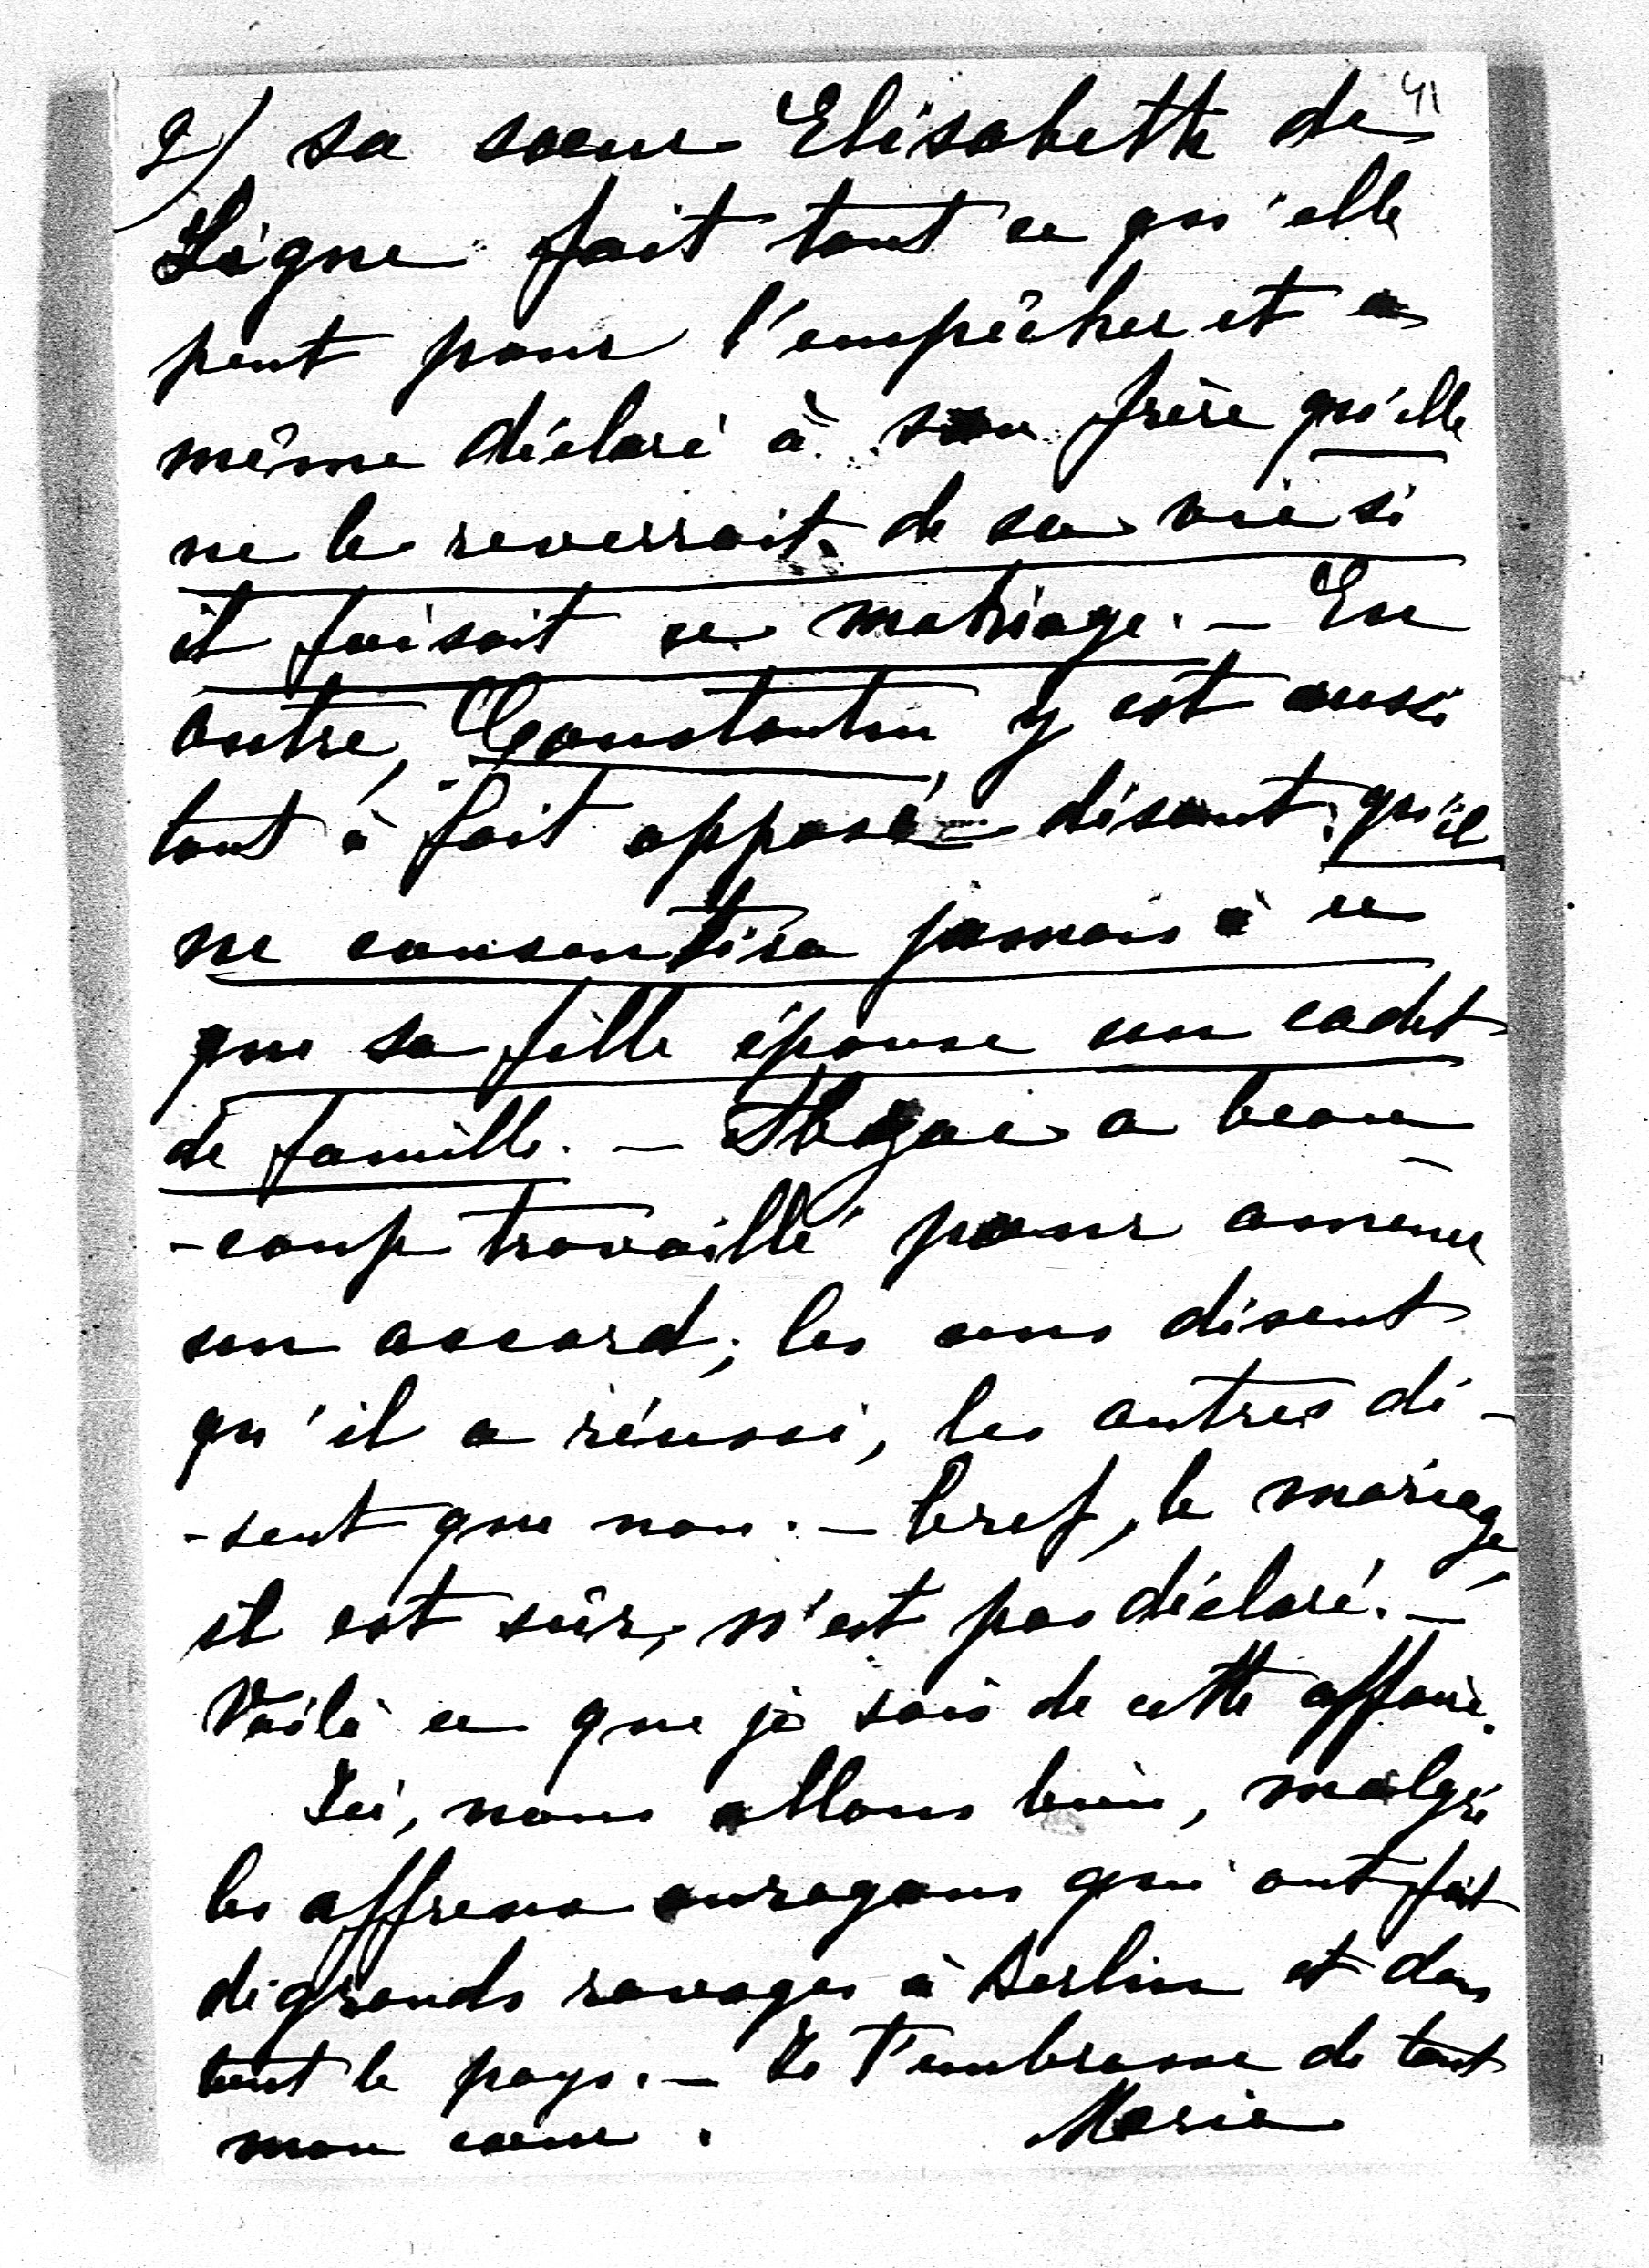 41
2) sa soeur Elisabeth de
Ligne fait tout ce qu'elle
peut pour l'empêcher et a
même déclaré à son frère qu'elle
ne le reverrait de sa vie si
il faisait ce mariage. — En
outre, Constantin, y est aussi
tout à fait opposé — disant qu'il
ne consentira jamais à ce
que sa fille épouse un cadet
de famille. — a beau
-coup travaillé pour amener
un accord; les uns disent
qu'il a réussi, les autres di-
-sent que non. — bref, le mariage,
il est sûr, n'est pas déclaré. —
Voilà ce que je sais de cette affaire.
Ici, nous allons bien, malgré
les affreux ouragans qui ont fait
de grands ravages à Berlin et dans
tout le pays. — Je t'embrasse de tout
mon coeur. Marie